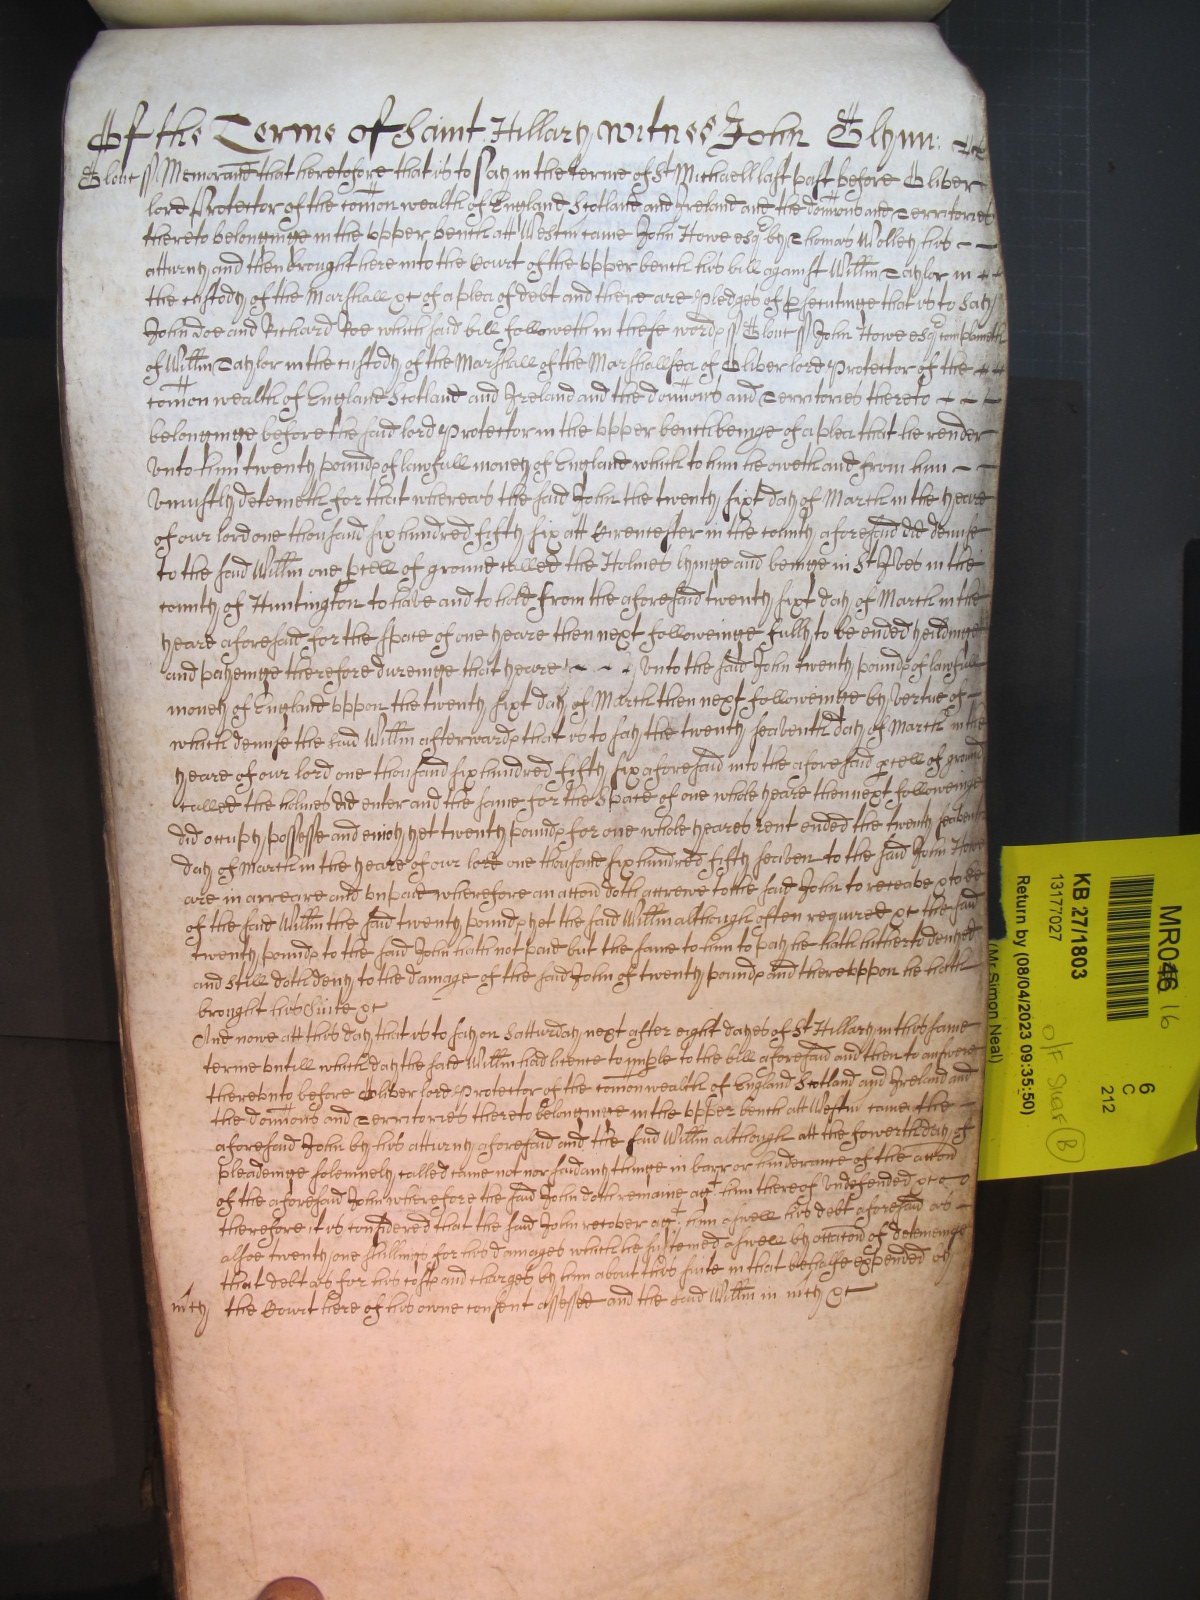 Of the Terme of Saint Hillary witnes John Glynn: &c
Glouc ss Memorand that heretofore that is to say in the terme of St Michaell last past before Oliver
lord Protector of the comon wealth of England Scotland and Ireland and the domions and Territories
thereto belonginge in the upper bench att Westm came John Howe esqr by Thomas Wolley his
atturny and then brought here into the Court of the upper bench his bill against Willm Taylor in
the custody of the Marshall &c of a plea of debt and there are Pledges of psecutinge that is to say
John Doe and Richard Roe which said bill followeth in these words ss Glouc ss John Howe esqr complaineth
of Willm Taylor in the custody of the Marshall of the Marshallsea of Oliver lord Protector of the
comon wealth of England Scotland and Ireland and the domions and Territories thereto
belonginge before the said lord Protector in the upper bench beinge of a plea that he render
unto him twenty pounds of lawfull money of England which to him he oweth and from him
uniustly deteineth for that whereas the said John the twenty sixt day of March in the yeare
of our lord one thousand six hundred fifty six att Cirencester in the county aforesaid did demise
to the said Willm one pcell of ground called the Holmes lyinge and beinge in St Ives in the
county of Huntington to have and to hold from the aforesaid twenty sixt day of March in the
yeare aforesaid for the space of one yeare then next followeinge fully to be ended yeildinge
and payeinge therefore dureinge that yeare unto the said John twenty pounds of lawfull
money of England uppon the twenty sixt day of March then next followeinge by vertue of
which demise the said Willm afterwards that is to say the twenty seaventh day of March in the
yeare of our lord one thousand six hundred fifty six aforesaid into the aforesaid pcell of ground
called the holmes did enter and the same for the Space of one whole yeare then next followeinge
did occupy possesse and enioy yet twenty pounds for one whole yeares rent ended the twenty seaventh
day of March in the yeare of our lord one thousand six hundred fifty seaven to the said John Howe
are in arreare and unpaid wherefore an accon doth accrewe to the said John to receave &
of the said Willm the said twenty pounds yet the said Willm although often required &c the said
twenty pounds to the said John hath not paid but the same to him to pay he hath hitherto denyed
and still doth deny to the damage of the said John of twenty pounds and thereuppon he hath
brought his Suite &c
And nowe att this day that is to say on Satturday next after eight dayes of St Hillary in this same
terme untill which day the said Willm had licence to imple to the bill aforesaid and then to answere
thereunto before Oliver lord Protector of the comon wealth of England Scotland and Ireland and
the domions and Territories thereto belonginge in the upper bench att Westm came the
aforesaid John by his atturny aforesaid and the said Willm although att the fowerth day of
pleadeinge solemnely called came not nor said any thinge in barr or hinderance of the accon
of the aforesaid John wherefore the said John doth remaine agt him thereof undefended &c
therefore it is considered that the said John recover agt him aswell his debt aforesaid as
alsoe twenty one shillings for his damages which he susteined aswell by occacon of deteineinge
that debt as for his costs and charges by him about this suite in that behalfe expended by
mcy the Court here of his owne consent assessed and the said Willm in mcy &c
MR046 16
6
C
212
KB 27/1803
13177027
Return by (08/04/2023 09:35:50)
(Mr Simon Neal)
O/F
B